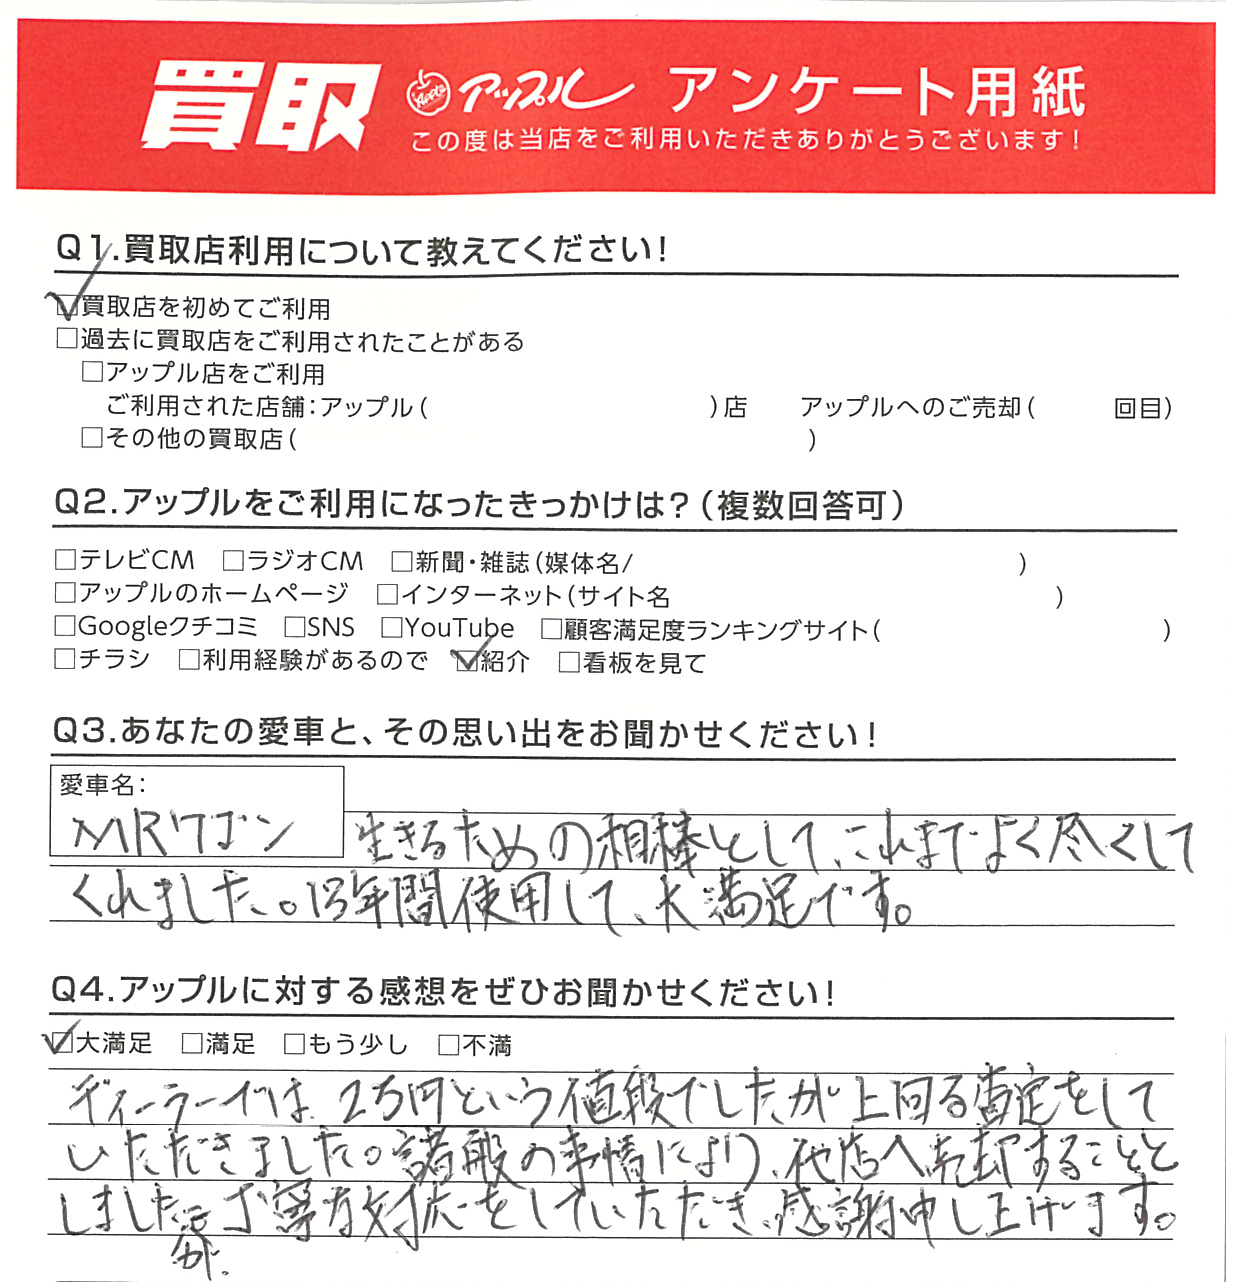 買取 Apple アップル アンケート用紙
この度は当店をご利用いただきありがとうございます!
Q1.買取店利用について教えてください!
☑買取店を初めてご利用
□過去に買取店をご利用されたことがある
□アップル店をご利用
ご利用された店舗:アップル( )店 アップルへのご売却( 回目)
□その他の買取店( )
Q2.アップルをご利用になったきっかけは?(複数回答可)
□テレビCM □ラジオCM □新聞・雑誌(媒体名/ )
□アップルのホームページ □インターネット(サイト名 )
□Googleクチコミ □SNS □YouTube □顧客満足度ランキングサイト( )
□チラシ □利用経験があるので ☑紹介 □看板を見て
Q3.あなたの愛車と、その思い出をお聞かせください!
愛車名:
MRワゴン 生きるための相棒として、これまでよく尽くして
くれました。13年間使用して、大満足です。
Q4.アップルに対する感想をぜひお聞かせください!
☑大満足 □満足 □もう少し □不満
ディーラーでは、2万円という値段でしたが上回る査定をして
いただきました。諸般の事情により、他店へ売却することと
しましたが、丁寧な対応をしていただき、感謝申し上げます。